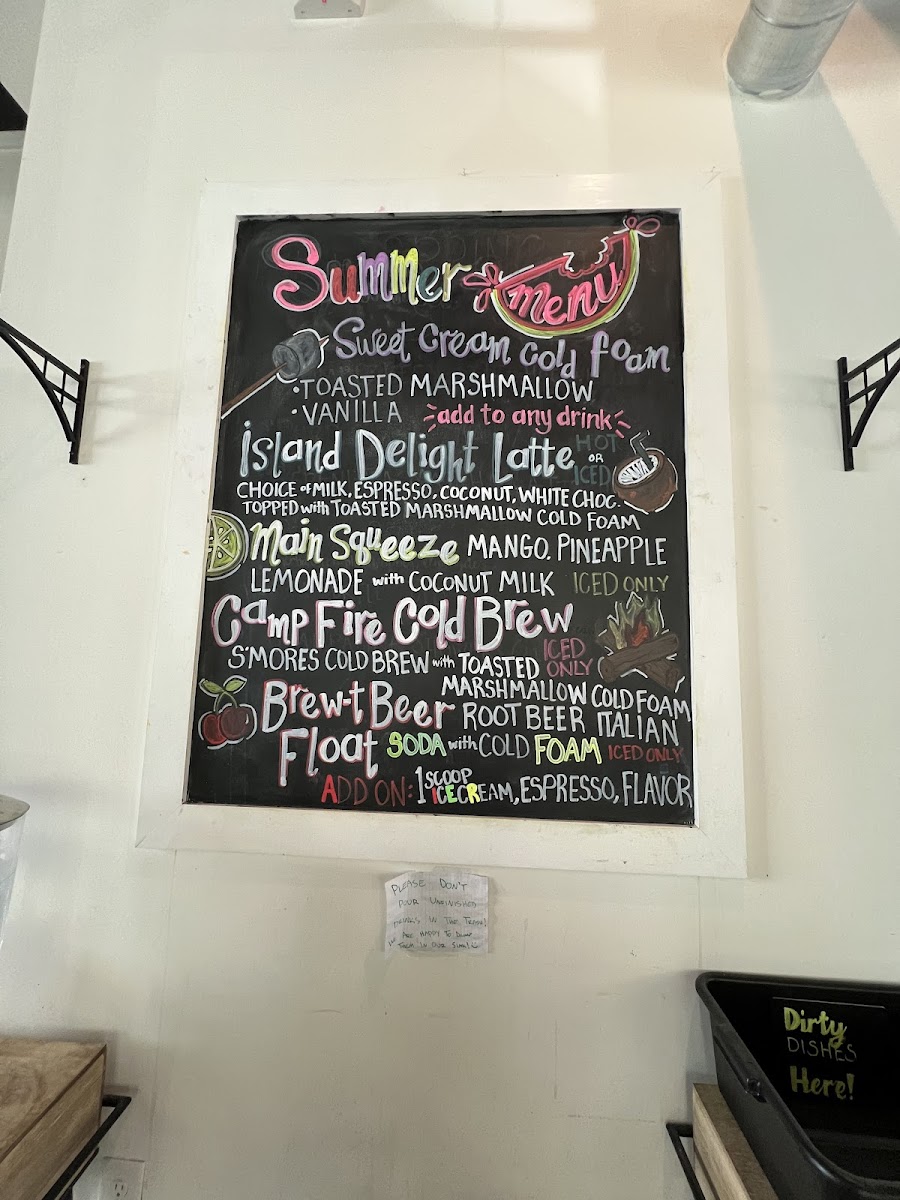 Summer menu
Sweet Cream Cold Foam
• TOASTED MARSHMALLOW
• VANILLA add to any drink
Island Delight Latte HOT OR ICED
CHOICE of MILK, ESPRESSO, COCONUT, WHITE CHOC.
TOPPED with TOASTED MARSHMALLOW COLD FOAM
Main Squeeze MANGO, PINEAPPLE
LEMONADE with COCONUT MILK ICED ONLY
Camp Fire Cold Brew
S'MORES COLD BREW with TOASTED ICED ONLY
MARSHMALLOW COLD FOAM
Brew-t Beer ROOT BEER ITALIAN
Float SODA with COLD FOAM ICED ONLY
ADD ON: 1 SCOOP ICE CREAM, ESPRESSO, FLAVOR
PLEASE DON'T
POUR UNFINISHED
DRINKS IN THE TRASH!
WE ARE HAPPY TO DUMP
THEM IN OUR SINK!
Dirty
DISHES
Here!